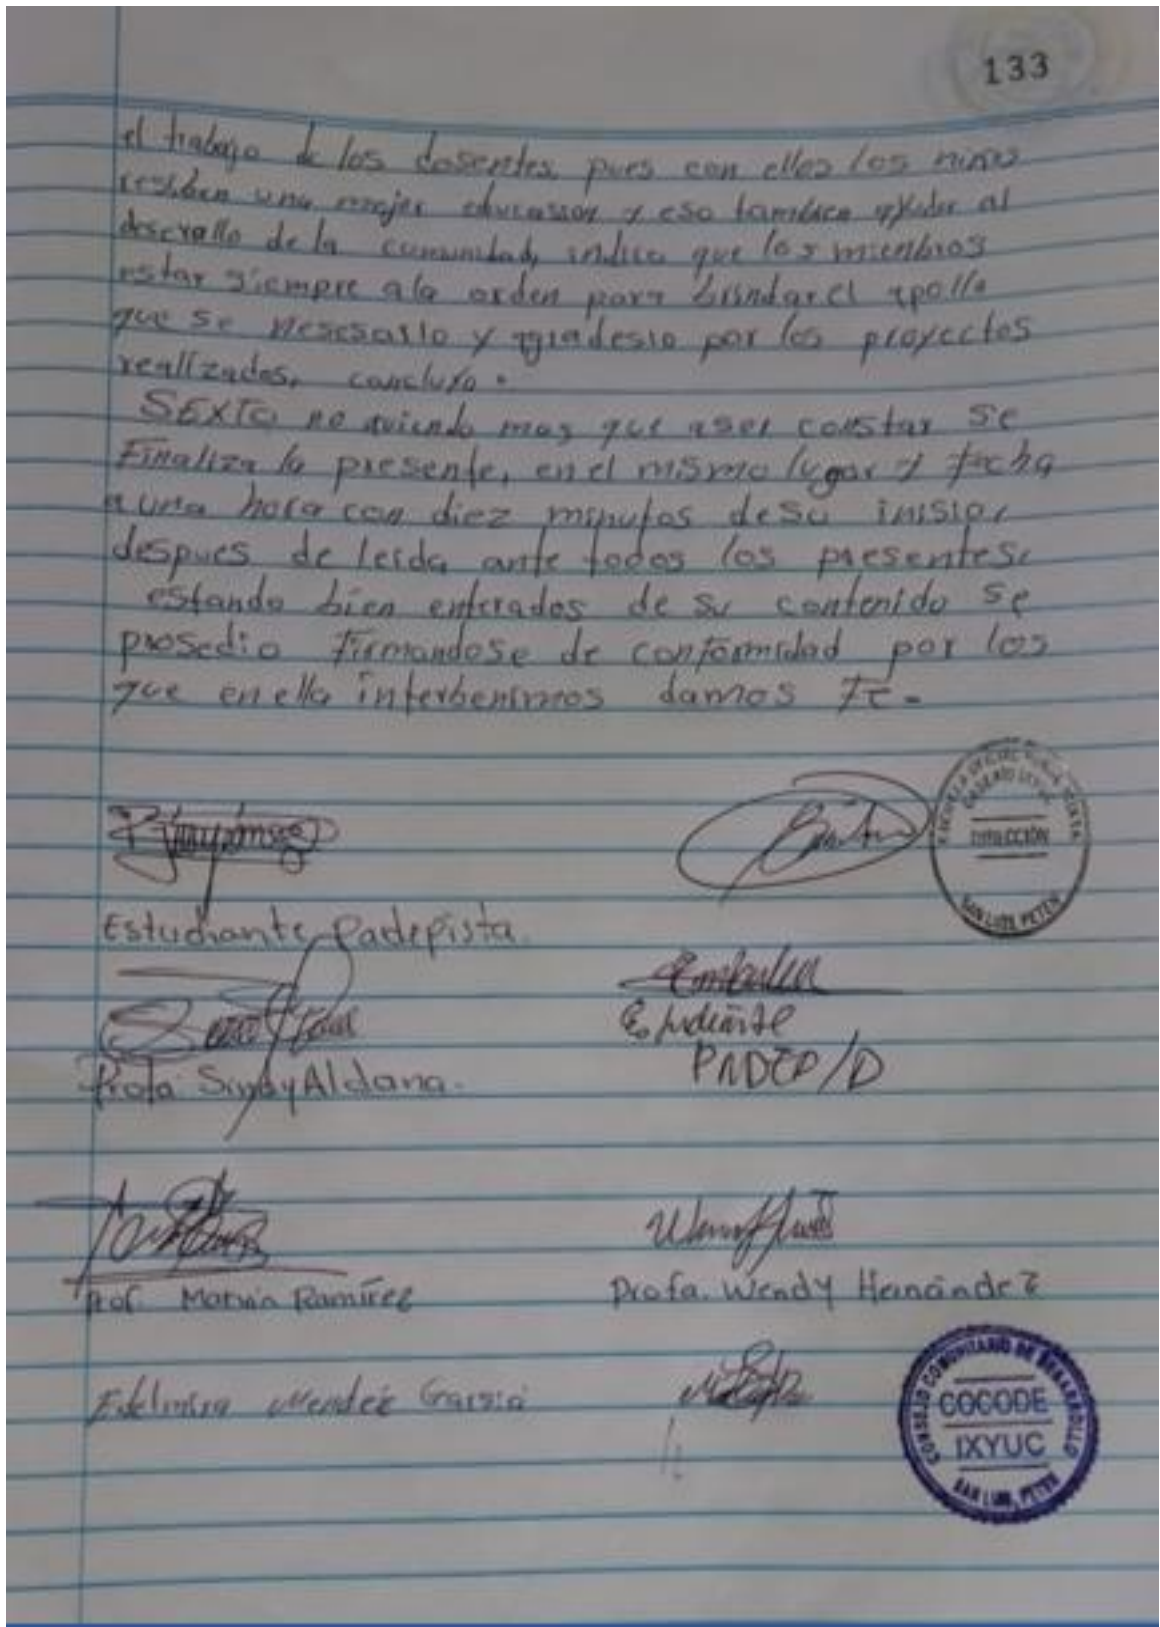 133
el trabajo de los dosentes, pues con ellos los niños
resiben una mejor educasion y eso tambien ayuda al
deserallo de la comunidad, indico que los miembros
estar siempre ala orden para brindar el apollo
que se nesesario y agradesio por los proyectos
realizados, concluyo.
SEXTO no aviendo mas que aser constar se
Finaliza la presente, en el mismo lugar y fecha
a una hora con diez minutos de su inisio,
despues de leida ante todos los presentes.
estando bien enterados de su contenido se
prosedio firmandose de conformidad por los
que en ella interbenimos damos Fe.
ESCUELA OFICIAL RURAL MIXTA
CASERIO IXYUC
DIRECCIÓN
SAN LUIS, PETEN
Estudiante Padepista.
Estudiante
PADEP/D
Profa. Sindy Aldana.
Prof. Marvin Ramírez
Profa. Wendy Hernández
Mendéz Garsia
CONSEJO COMUNITARIO DE DESARROLLO
COCODE
IXYUC
SAN LUIS, PETEN